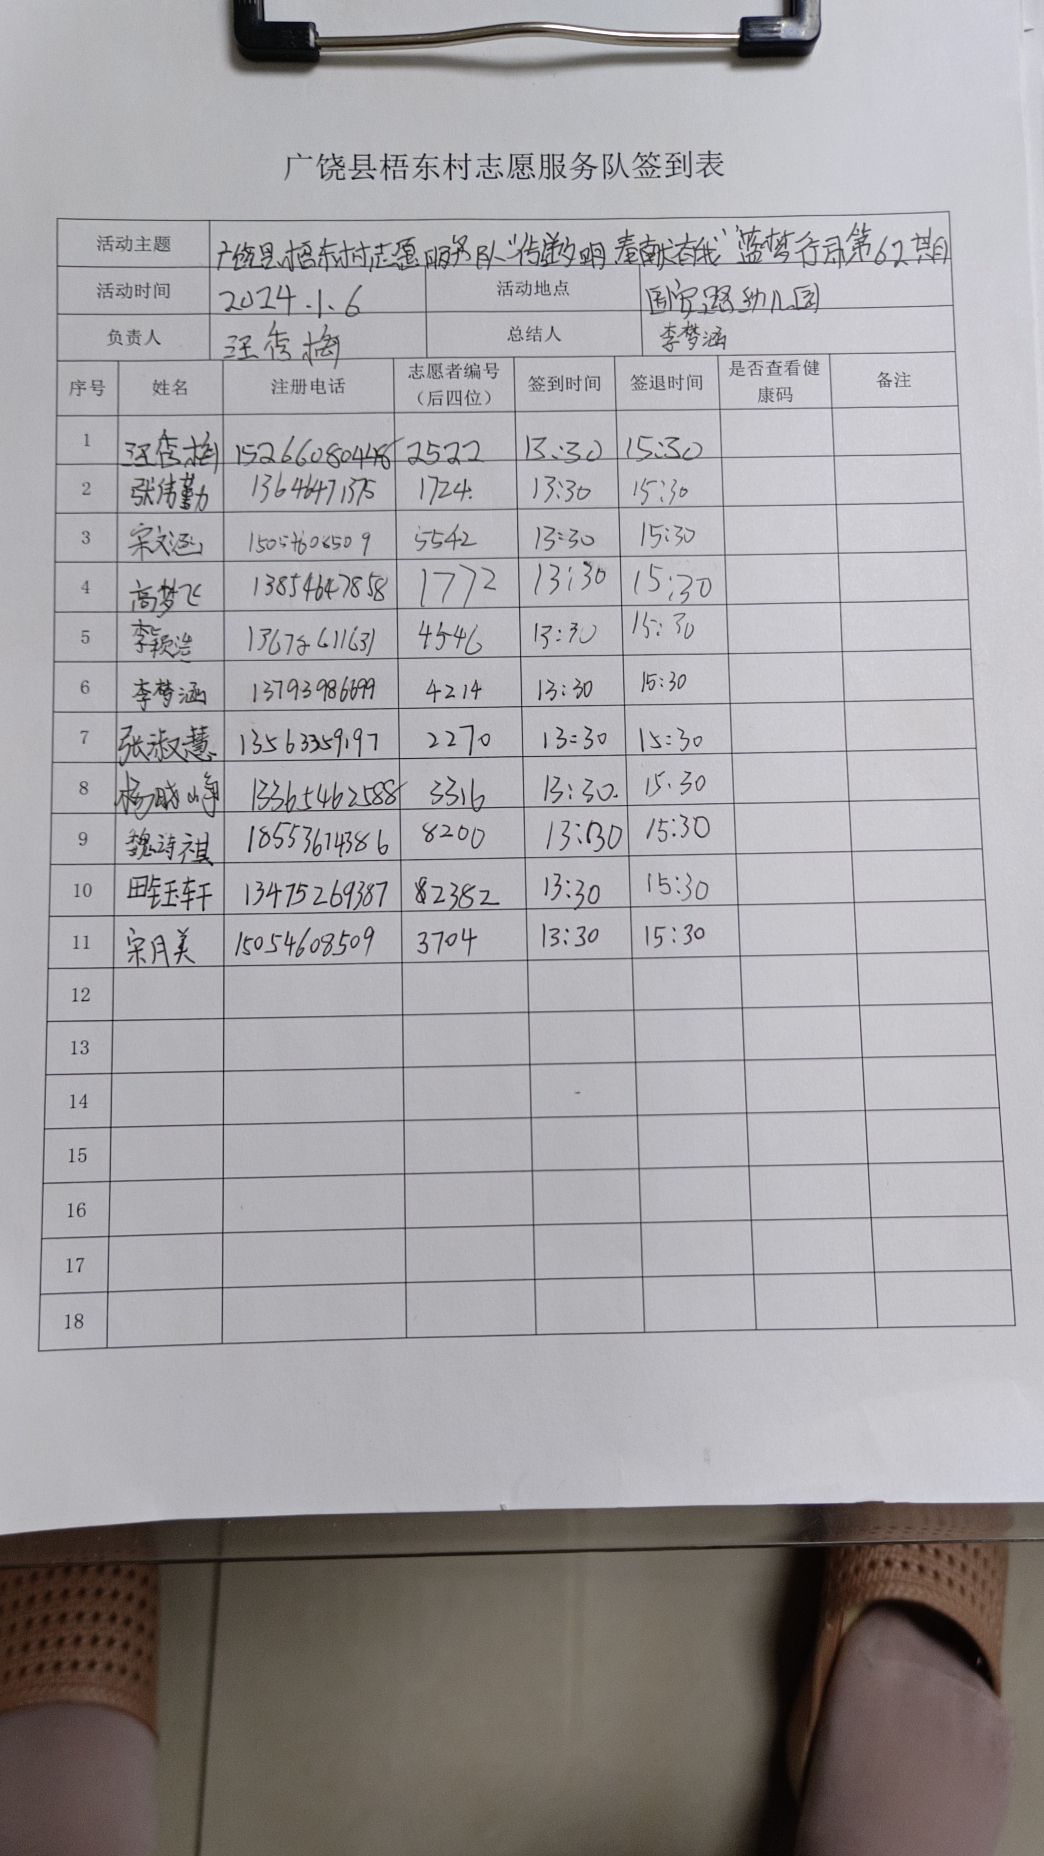 广饶县梧东村志愿服务队签到表
活动主题 广饶县梧东村志愿服务队“传递文明 奉献有我”蓝梦行动第62期
活动时间 2024.1.6 活动地点 国安路幼儿园
负责人 汪秀梅 总结人 李梦涵
序号 姓名 注册电话 志愿者编号（后四位） 签到时间 签退时间 是否查看健康码 备注
1 汪秀梅 15266080448 2522 13:30 15:30
2 张伟勤 13646471375 1724 13:30 15:30
3 宋文涵 15054608509 5542 13:30 15:30
4 高梦飞 13854647858 1772 13:30 15:30
5 李颖浩 4546 13:30 15:30
6 李梦涵 13793986699 4214 13:30 15:30
7 张淑慧 13563359197 2270 13:30 15:30
8 杨晓峰 13365462588 3316 13:30 15:30
9 魏诗祺 18553674386 8200 13:30 15:30
10 田钰轩 13475269387 82382 13:30 15:30
11 宋月美 15054608509 3704 13:30 15:30
12
13
14
15
16
17
18